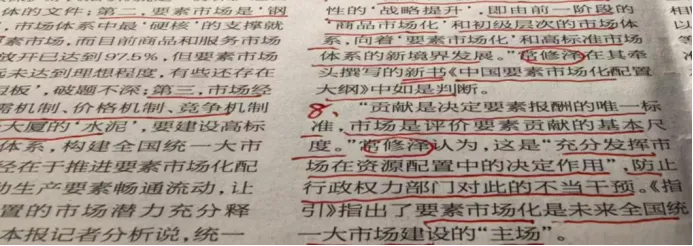 体的文件；第二，要素市场是‘钢
，市场体系中最‘硬核’的支撑就
素市场，而目前商品和服务市场
放开已达到97.5%，但要素市场
远未达到理想程度，有些还存在
短板’，破题不深；第三，市场经
需机制、价格机制、竞争机制
大厦的‘水泥’，要建设高标
体系，构建全国统一大市
径在于推进要素市场化配
动生产要素畅通流动，让
置的市场潜力充分释
本报记者分析说，统一
性的‘战略提升’，即由前一阶段的
‘商品市场化’和初级层次的市场体
系，向着‘要素市场化’和高标准市场
体系的新境界发展。”常修泽在其牵
头撰写的新书《中国要素市场化配置
大纲》中如是判断。
8、“贡献是决定要素报酬的唯一标
准，市场是评价要素贡献的基本尺
度。”常修泽认为，这是“充分发挥市
场在资源配置中的决定作用”，防止
行政权力部门对此的不当干预。《指
引》指出了要素市场化是未来全国统
一大市场建设的“主场”。
相
以